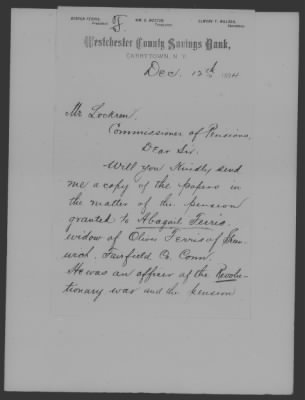 BENSON FERRIS,
President
WM. D. HUSTED,
Treasurer
ELMORE T.
Secretary
F
Westchester County Savings Bank,
TARRYTOWN, N.Y.
Dec. 12th 1894
Mr Lochren.
Commissioner of Pensions.
Dear Sir.
Will you Kindly send
me a copy of the papers in
the matter of the pension
granted to Abagail Ferris.
widow of Oliver Ferris of Green
wich. Fairfield Co. Conn.
He was an officer of the Revolu-
tionary war and the pension